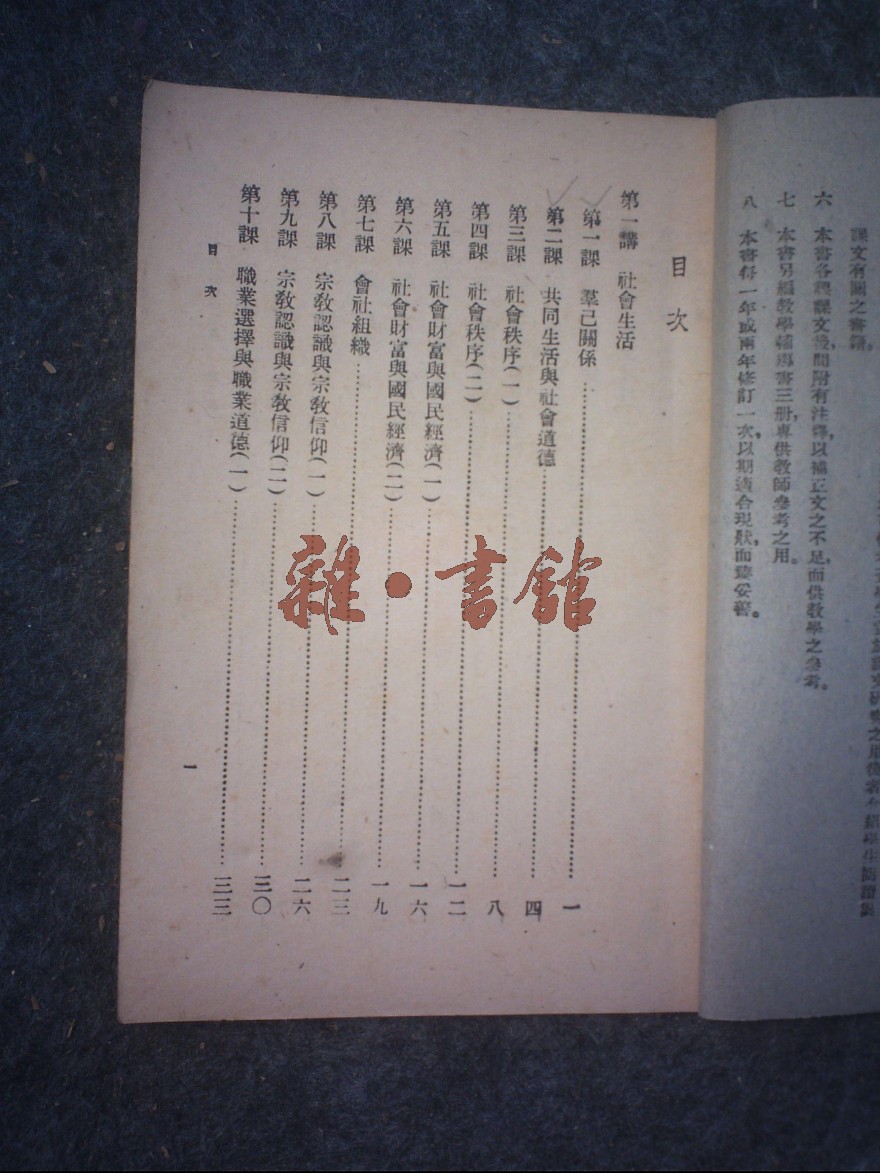 課文有關之書籍。
六　本書各課課文後，間附有注釋，以補正文之不足，而供教學之參考。
七　本書另編教學輔導書三册，專供教師參考之用。
八　本書每一年或兩年修訂一次，以期適合現狀，而臻妥善。
目次
第一講　社會生活
第一課　羣己關係……一
第二課　共同生活與社會道德……四
第三課　社會秩序(一)……八
第四課　社會秩序(二)……一二
第五課　社會財富與國民經濟(一)……一六
第六課　社會財富與國民經濟(二)……一九
第七課　會社組織……二三
第八課　宗教認識與宗教信仰(一)……二六
第九課　宗教認識與宗教信仰(二)……三〇
第十課　職業選擇與職業道德(一)……三三
目次
一
雜·書館